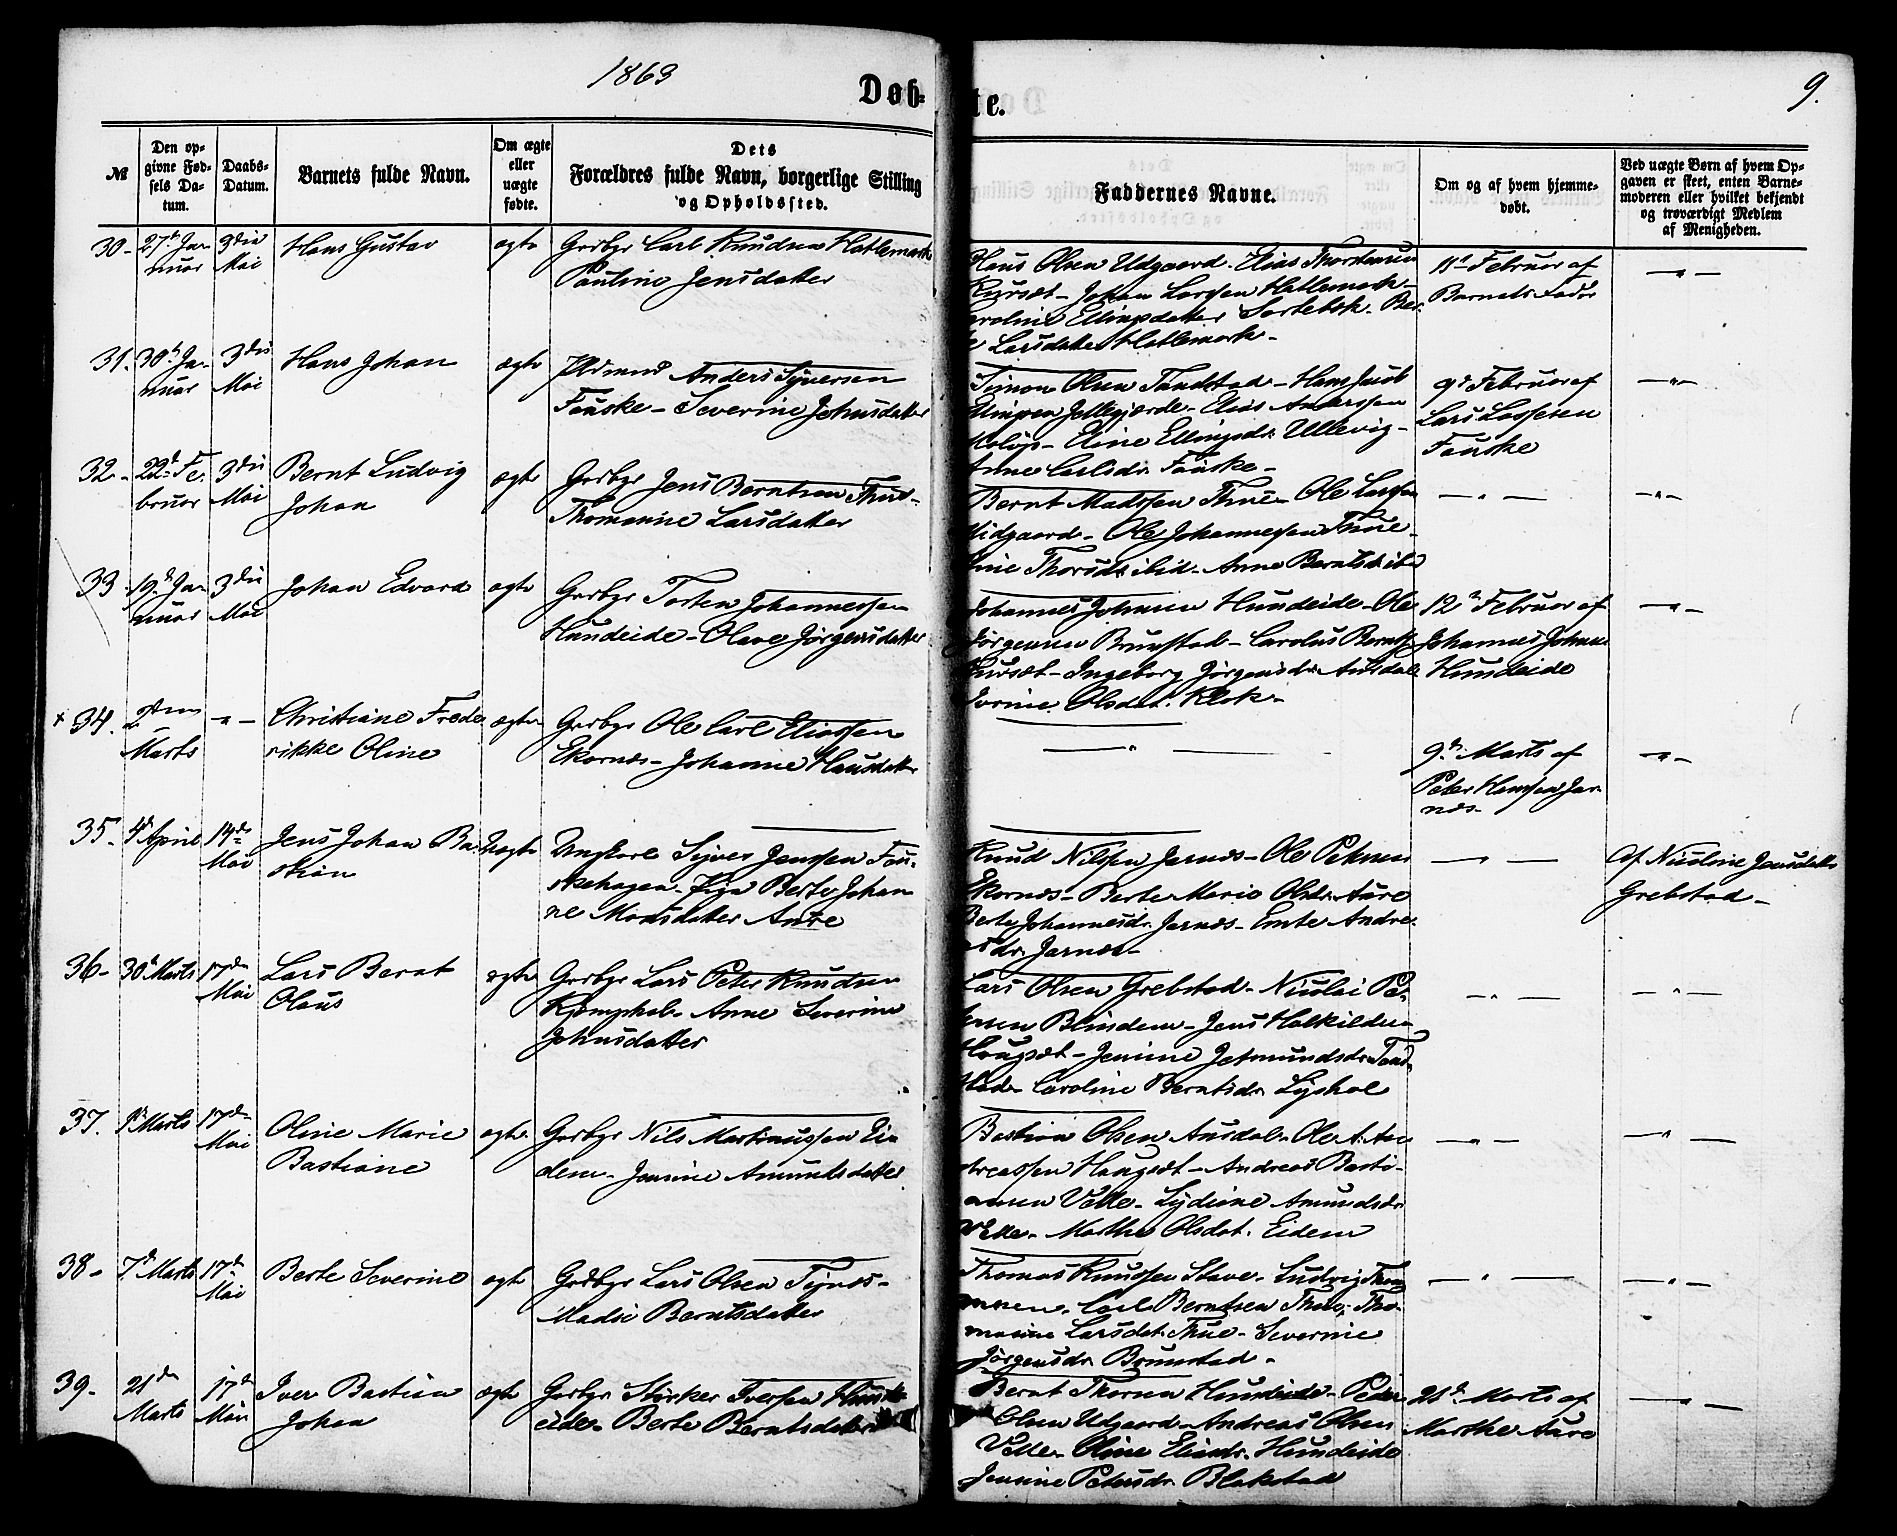 1863
Døb-
te.
9.
№
Den op-
givne Fød-
sels Da-
tum.
Daabs-
Datum.
Barnets fulde Navn.
Om ægte
eller
uægte
fødte.
Dets
Forældres fulde Navn, borgerlige Stilling
og Opholdssted.
Faddernes Navne.
Om og af hvem hjemme-
døbt.
Ved uægte Børn af hvem Op-
gaven er skeet, enten Barne-
moderen eller hvilket bekjendt
og troværdigt Medlem
af Menigheden.
30-
27de Ja-
nuar
3die
Mai
Hans Gustav
ægte
Grdbgr Carl Knudsen Hatlemark
Pauline Jensdatter
Hans Olsen Udgaard. Elias Thorstensen
Kursæt- Johan Larssen Hatlemark-
Caroline Ellingsdatter Sortebek. Ber-
te Larsdatter Hatlemark-
11te Februar af
Barnets Fader
—"—
31.
30te Ja-
nuar
3die
Mai
Hans Johan
ægte
Anders Syversen
Fauske- Severine Johnsdatter
Simon Olsen Tandstad- Hans Jacob
Ellingsen - Elias Anderssen
- Eline Ellingsdr. Ullevig-
Anne Carlsdr. Fauske-
9de Februar af
Lars Lassesen
Fauske
—"—
32-
22de Fe-
bruar
3die
Mai
Bernt Ludvig
Johan
ægte
Grdbgr Jens Berntsen Thue-
Thomasine Larsdatter
Bernt Madssen Thue- Ole Larssen
Midgaard- Ole Johannessen Thue-
Thorsdr. ibid- Anne Berntsdr. ibd
—"—
—"—
33
19de Ja-
nuar
3die
Mai
Johan Edvard
ægte
Grdbgr Torsten Johannessen
Hundeide- Olave Jørgensdatter
Johannes Johnsen Hundeide- Ole
Jørgensen Brunstad- Carolus Berntss.
Kursæt- Ingeborg Jørgensdr. Ausdal
Olsdat. Klok-
12te Februar af
Johannes Johnsen
Hundeide
—"—
+ 34.
2den
Marts
—"—
Christiane Frede-
rikke Oline
ægte
Grdbgr Ole Carl Eliassen
Ekornæs- Johanne Hansdatter
—"—
9de Marts af
Peter Hanssen Jar-
næs-
—"—
35-
4de April
14de
Mai
Jens Johan Ba-
stian
Uægte
Ungkarl Syver Jenssen Fau-
skehagen- Pige Berte Johan-
ne Monsdatter Aure
Knud Nilssen Jarnæs- Ole Petersen
Ekornæs- Berte Marie Olsdr. Aure
Berte Johannesdr. Jarnæs- Emte Andre-
asdr. Jarnæs-
—"—
Af Nicoline Jensdatter
Grebstad-
36-
30te Marts
17de
Mai
Lars Bernt
Olaus
ægte
Grdbgr Lars Peter Knudsen
Kjemphol- Anne Severine
Johnsdatter
Lars Olsen Grebstad- Nicolai Pe-
tersen Blindem- Jens Halkildsen
Haugsæt- Jensine Jetmundsdr. Tand-
stad- Caroline Berntsdr. Lyshol
—"—
—"—
37.
1ste Marts
17de
Mai
Oline Marie
Bastiane
ægte
Grdbgr Nils Martinussen Ei-
dem- Jensine Amundsdatter
Bastian Olsen Ausdal- Ole A. An-
dreassen Haugsæt- Andreas Basti-
ansen Velle- Lydiane Amundsdr.
Velle- Marthe Olsdat. Eidem
—"—
—"—
38-
7de Marts
17de
Mai
Berte Severine
ægte
Grdbgr Lars Olsen Tynæs-
Madsi Berntsdatter
Thomas Knudsen Stave- Ludvig Thom-
assen- Carl Berntsen Thue- Tho-
masine Larsdat. Thue- Severine
Jørgensdr. Brunstad-
—"—
—"—
39-
21de
Marts
17de
Mai
Iver Bastian
Johan
ægte
Grdbgr Størker Iversen Hund-
eide- Berte Berntsdatter
Bernt Thorsen Hundeide- Peder
Olsen Udgaard- Andreas Olsen
Velle- Oline Eliasdr. Hundeide
Jensine Petersdr. Blakstad
28de Marts af
Marthe Aure
—"—